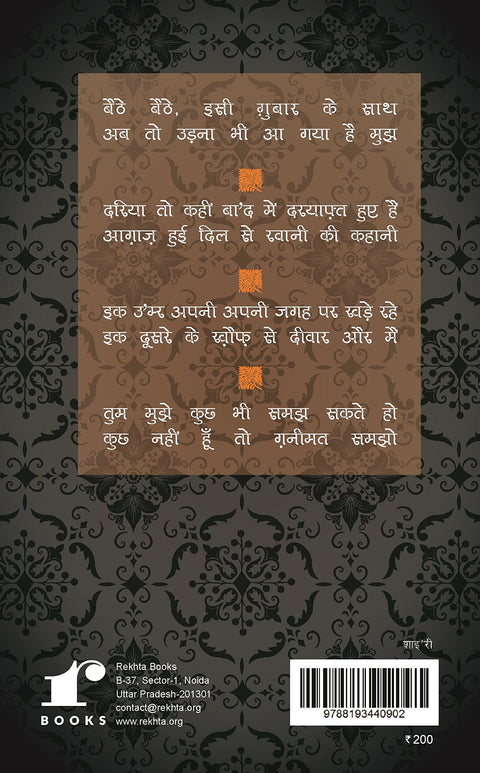 बैठे बैठे, इसी ग़ुबार के साथ
अब तो उड़ना भी आ गया है मुझ
दरिया तो कहीं बा'द में दरयाफ़्त हुए हैं
आग़ाज़ हुई दिल से रवानी की कहानी
इक उ'म्र अपनी अपनी जगह पर खड़े रहे
इक दूसरे के ख़ौफ़ से दीवार और मैं
तुम मुझे कुछ भी समझ सकते हो
कुछ नहीं हूँ तो ग़नीमत समझो
शाइ'री
r
BOOKS
Rekhta Books
B-37, Sector-1, Noida
Uttar Pradesh-201301
contact@rekhta.org
www.rekhta.org
9788193440902
₹ 200